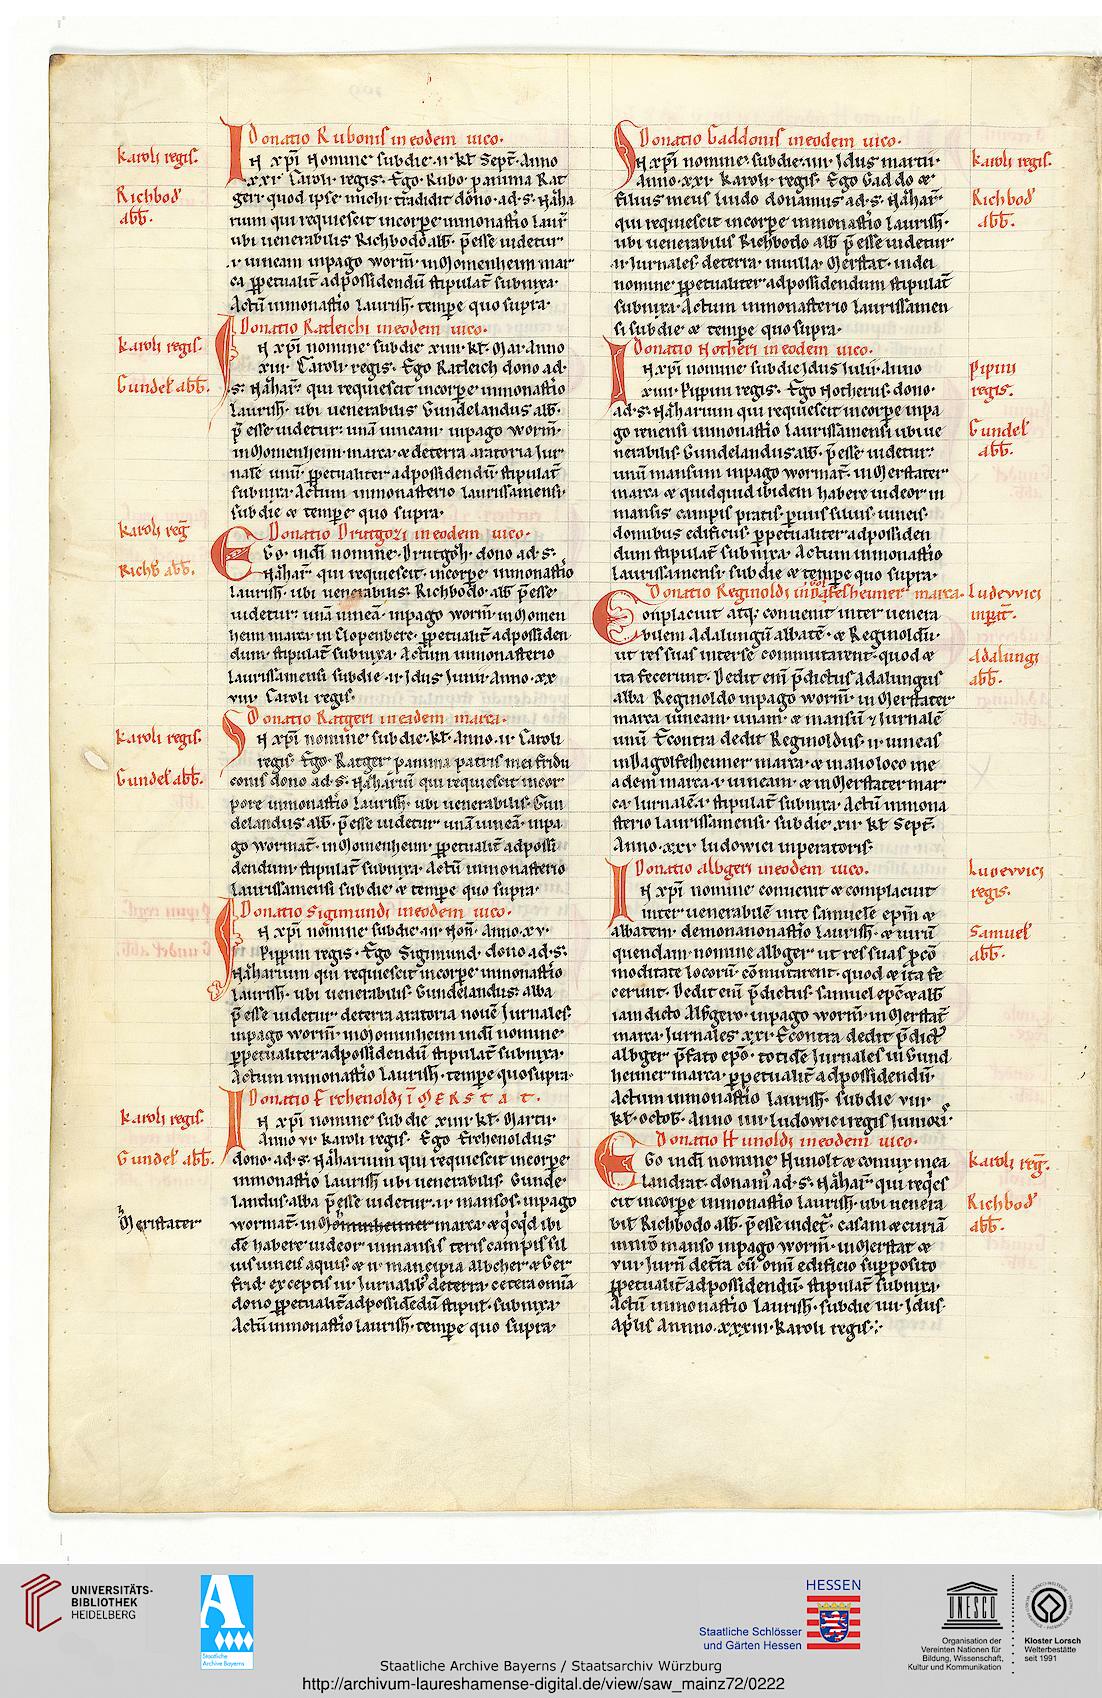 Donatio Rubonis in eodem uico.
karoli regis.
IN xpi nomine sub die .II. kł Sept̄. anno
.xxi. Caroli regis. Ego Rubo p anima Rat
Richbod
geri quod ipse michi tradidit dono .ad .s. Naza
abb̄.
rium qui requiescit in corpe in monast̄io laur̄
ubi uenerabilis Richbodo abb̄. p̄esse uidetur
.I. uineam in pago worm̄. in Momenheim mar
ca ppetualit̄ ad possidendū stipulat̄ subnixa.
Actū in monast̄io laurish̄. tempe quo supra.
Donatio Ratleichi in eodem uico.
karoli regis.
IN xpi nomine sub die xiiii. kł. Mai. anno
xiii. Caroli regis. Ego Ratleich dono ad.
Gundel abb̄.
s. Nazhar̄. qui requiescit in corpe in monast̄io
laurish̄. ubi uenerabilis Gundelandus abb̄.
p̄esse uidetur. unā uineam. in pago worm̄.
in Momenheim. marca. & de terra aratoria Iur
nale unū. ppetualiter ad possidendū. stipulat̄
subnixa. Actum in monasterio laurissamensi.
sub die & tempe quo supra.
karoli reḡ
Donatio Drutgozi in eodem uico.
EGo. in dī nomine. Drutgoz̄h. dono ad .s.
Richb̄ abb̄.
Nazhar̄ qui requiescit. in corpe in monast̄io
laurish̄. ubi uenerabilis. Richbodo. abb̄ p̄esse
uidetur. unā uineā. in pago worm̄. in Momen
heim marca in Clopenberc. ppetualit̄ ad possiden
dum. stipulat̄ subnixa. Actum in monasterio
laurissamensi sub die .II. Idus Iunii. anno. xx
viii. Caroli regis.
Donatio Ratgeri in eadem marca.
karoli regis.
IN xpi nomine sub die. kł. anno. II. Caroli
regis. Ego. Ratger p anima patris mei fridu
Gundel abb̄.
conis dono ad .s. Nazhariū qui requiescit in cor
pore in monast̄io laurish̄. ubi uenerabilis. Gun
delandus abb̄. p̄esse uidetur unā uineā. in pa
go wormat̄. in Momenheim. ppetualit̄ ad possi
dendum stipulat̄ subnixa. Actū in monasterio
laurissamensi sub die & tempe quo supra.
Donatio Sigimundi in eodem uico.
IN xpi nomine sub die. III. Non̄. anno. xv.
Pippini regis. Ego Sigimund. dono ad .s.
Nazharium qui requiescit in corpe in monast̄io
laurish̄. ubi uenerabilis. Gundelandus. abba
p̄esse uidetur de terra aratoria nouē Iurnales.
in pago worm̄. in Momenheim in dī nomine.
ppetualiter ad possidendū stipulat̄ subnixa.
Actum in monast̄io laurish̄. tempe quo supra.
Donatio Erchenoldi ī MERSTAT.
karoli regis.
IN xpi nomine sub die xiiii. kł. Martii.
anno vi. karoli regis. Ego Erchenoldus
Gundel abb̄.
dono. ad .s. Nazharium qui requiescit in corpe
in monast̄io laurish̄ ubi uenerabilis. Gunde
landus. abba p̄esse uidetur. II. mansos. in pago
Meristater
wormat̄. in Mommenheimer marca & q̄cq̄d ibi
dē habere uideor in mansis terris campis sil
uis uineis aquis. & II. mancipia albcher & Ger
frid. exceptis III. Iurnalib; de terra. cetera omīa
dono ppetualit̄ ad possidēdū stipul̄. subnixa.
Actū in monast̄io laurish̄. tempe quo supra.
Donatio Gaddonis in eodem uico.
IN xpi nomine. sub die. IIII. Idus martii.
karoli regis.
anno. xxi. karoli regis. Ego Gaddo &
filius meus luido donamus ad .s. Nazhar̄.
Richbod
qui requiescit in corpe in monast̄io laurish̄.
abb̄.
ubi uenerabilis Richbodo abb̄ p̄esse uidetur
.II. Iurnales. de terra. in uilla. Meristat. in dei
nomine. ppetualiter ad possidendum stipulat̄
subnixa. Actum in monasterio laurissamen
si sub die & tempe quo supra.
Donatio Notheri in eodem uico.
IN xpi nomine sub die Idus Iulii. anno
Pipini
xiiii. Pippini regis. Ego Notherus. dono.
regis.
ad .s. Nazharium qui requiescit in corpe in pa
go renensi in monast̄io laurissamensi ubi ue
Gundel
nerabilis. Gundelandus abb̄. p̄esse uidetur.
abb̄.
unū mansum in pago wormat̄. in Meristater
marca & quidquid ibidem habere uideor in
mansis campis pratis. puiis siluis. uineis.
domibus edificiis. ppetualiter ad possiden
dum stipulat̄ subnixa. Actum in monast̄io
laurissamensi. sub die & tempe quo supra.
Donatio Reginoldi in Wagolfesheimer marca.
Ludevvici
Conplacuit atq; conuenit inter uenera
inpat̄.
bilem Adalungū abbatē. & Reginoldū.
ut res suas inter se commutarent. quod &
Adalungi
ita fecerunt. Dedit eni p̄dictus Adalungus
abb̄.
abba Reginoldo in pago worm̄. in Meristater
marca uineam unam. & mansū & Iurnalē
unū Econtra dedit Reginoldus. II. uineas
in Wagolfesheimer marca. & in alio loco in e
adem marca. I. uineam. & in Meristater mar
ca. Iurnalē .I. stipulat̄ subnixa. Actū in mona
sterio laurissamensi. sub die. xii. kł Sept̄.
Anno. xxi. ludowici inperatoris.
Donatio albgeri in eodem uico.
Ludevvici
IN xpi nomine conuenit & complacuit
regis.
inter uenerabilē uirū samuelē epm̄ &
albatem. de monast̄io laurish̄. & uirū
Samuel
quendam nomine albger ut res suas p cō
abb̄.
moditate locorū cōmutarent. quod & ita fe
cerunt. Dedit eni p̄dictus. samuel epc̄ & abb̄
iam dicto Albgero. in pago worm̄. in Meristat̄
marca. Iurnales. xxi. Econtra dedit p̄dict̄
albger p̄fato epō. totidē Iurnales in Gund
heimer marca. ppetualit̄ ad possidendū.
Actum in monast̄io laurish̄. sub die viii.
kł. octob̄. anno IIII. ludowici regis Iunioris.
Donatio Hunoldi in eodem uico.
EGo in dī nomine Hunolt & coniux mea
karoli reḡ.
landrat. donam; ad .s. Nazhar̄. qui reqes
cit in corpe in monast̄io laurish̄. ubi uenera
Richbod
bil̄ Richbodo abb̄. p̄esse uidet̄. casam & curiā
abb̄.
in uno manso in pago worm̄. in Meristat &
viii. Iurn̄ de t̄ra cū om̄i edificio supposito
ppetualit̄ ad possidendū. stipulat̄ subnixa.
Actū in monast̄io laurish̄. sub die IIII. Idus
aplis Annno. xxxiii. karoli regis.
UNIVERSITÄTS-
BIBLIOTHEK
HEIDELBERG
Staatliche
Archive Bayerns
HESSEN
Staatliche Schlösser
und Gärten Hessen
UNESCO
Organisation der
Vereinten Nationen für
Bildung, Wissenschaft,
Kultur und Kommunikation
Kloster Lorsch
Welterbestätte
seit 1991
Staatliche Archive Bayerns / Staatsarchiv Würzburg
http://archivum-laureshamense-digital.de/view/saw_mainz72/0222